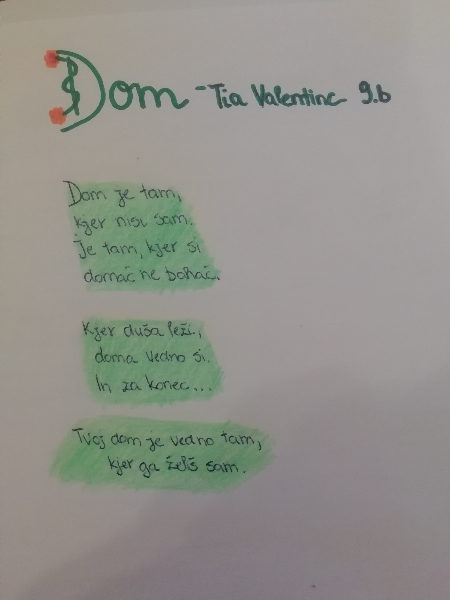 Dom - Tia Valentinc 9.b
Dom je tam,
kjer nisi sam.
Je tam, kjer si
domač ne bahač.
Kjer duša leži,
doma vedno si.
In za konec...
Tvoj dom je vedno tam,
kjer ga želiš sam.